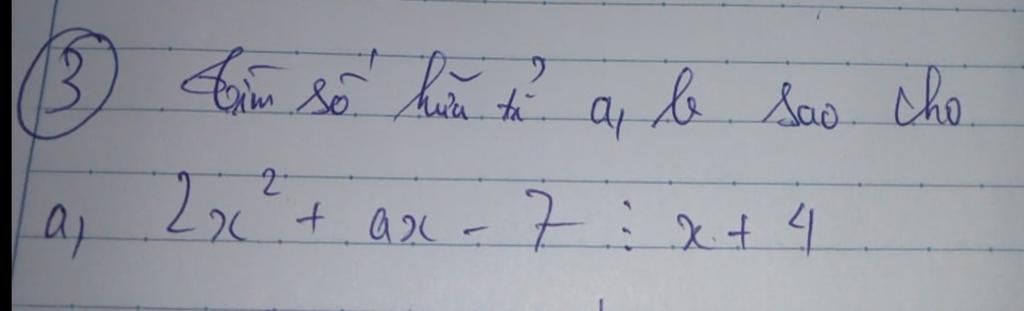 ③ Tìm số hữu tỉ a, b sao cho
a, 2x² + ax - 7 ⋮ x + 4